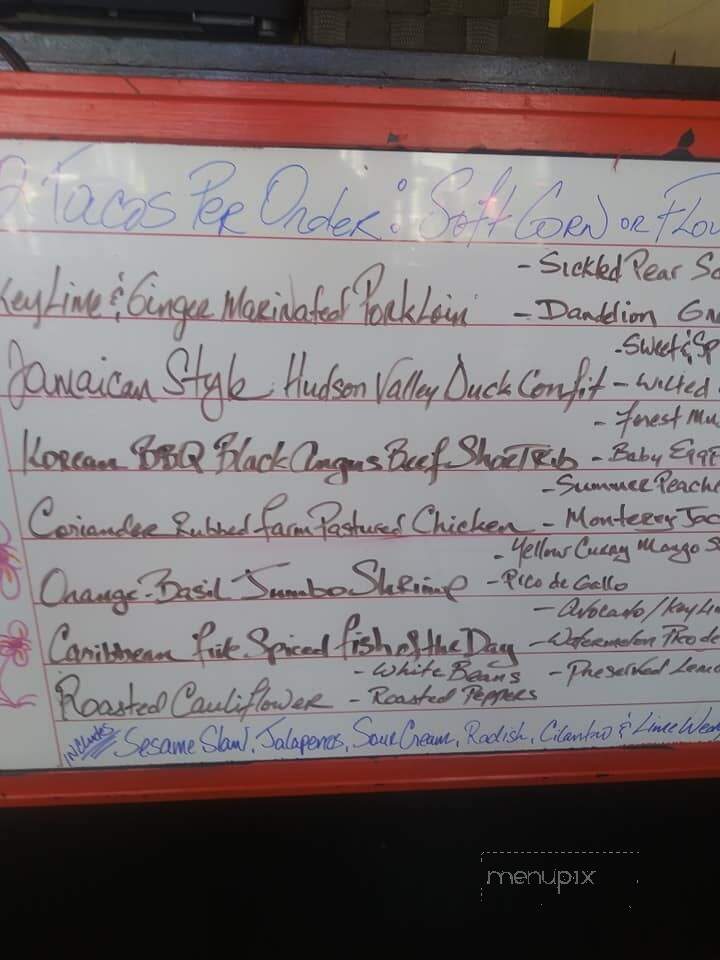 2 Tacos Per Order: Soft Corn or Flou
- Sickled Pear Sa
Key Lime & Ginger Marinated Pork Loin - Dandelion Gr
- Sweet & Sp
Jamaican Style Hudson Valley Duck Confit - Wilted
- Forest Mu
Korean BBQ Black Angus Beef Short Rib - Baby Egg
- Summer Peache
Coriander Rubbed Farm Pastured Chicken - Monterey Jac
- Yellow Curry Mango S
Orange-Basil Jumbo Shrimp - Pico de Gallo
- Avocado/Key Lim
Caribbean Spiced Fish of the Day - Watermelon Pico de
- White Beans - Preserved Lemo
Roasted Cauliflower - Roasted Peppers
Includes Sesame Slaw, Jalapenos, Sour Cream, Radish, Cilantro & Lime Wedg
menupix